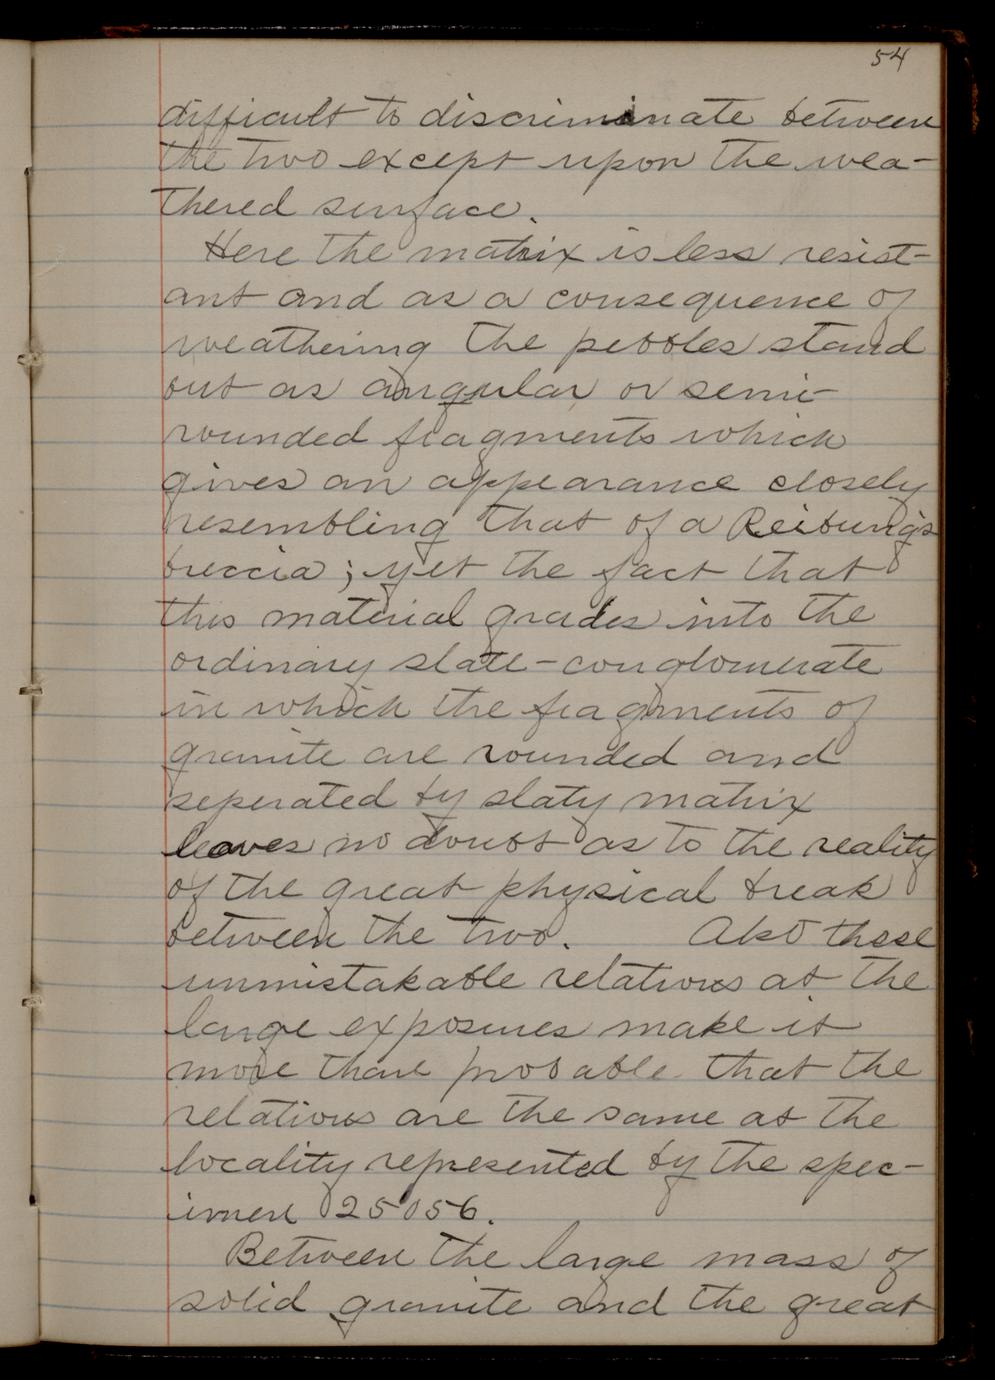 54
difficult to discriminate between
the two except upon the wea-
thered surface.
Here the matrix is less resist-
ant and as a consequence of
weathering the pebbles stand
out as angular or semi-
rounded fragments which
gives an appearance closely
resembling that of a Reibungs
breccia; yet the fact that
this material grades into the
ordinary slate-conglomerate
in which the fragments of
granite are rounded and
seperated by slaty matrix
leaves no doubt as to the reality
of the great physical break
between the two. Also these
unmistakable relations at the
large exposures make it
more than probable that the
relations are the same at the
locality represented by the spec-
imen 25056.
Between the large mass of
solid granite and the great